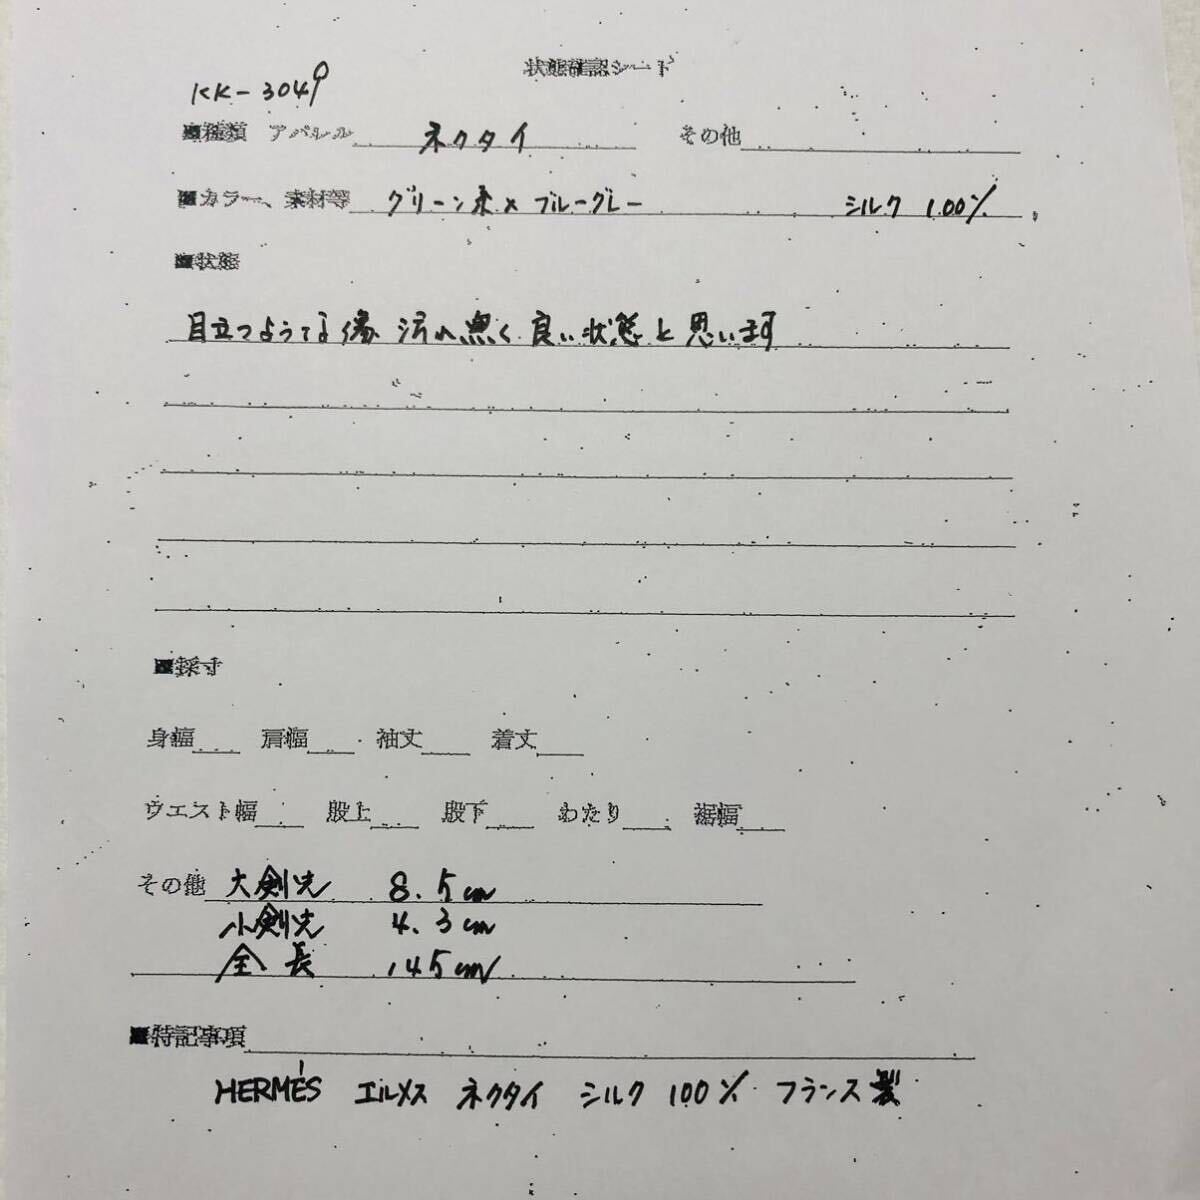 状態確認シート
KK-3049
■種類 アパレル ネクタイ その他
■カラー、素材等 グリーン系×ブルーグレー シルク 100%
■状態
目立つような傷 汚れ無く 良い状態と思います
■採寸
身幅 肩幅 袖丈 着丈
ウエスト幅 股上 股下 わたり 裾幅
その他 大剣先 8.5cm
小剣先 4.3cm
全長 145cm
■特記事項
HERMÉS エルメス ネクタイ シルク 100% フランス製